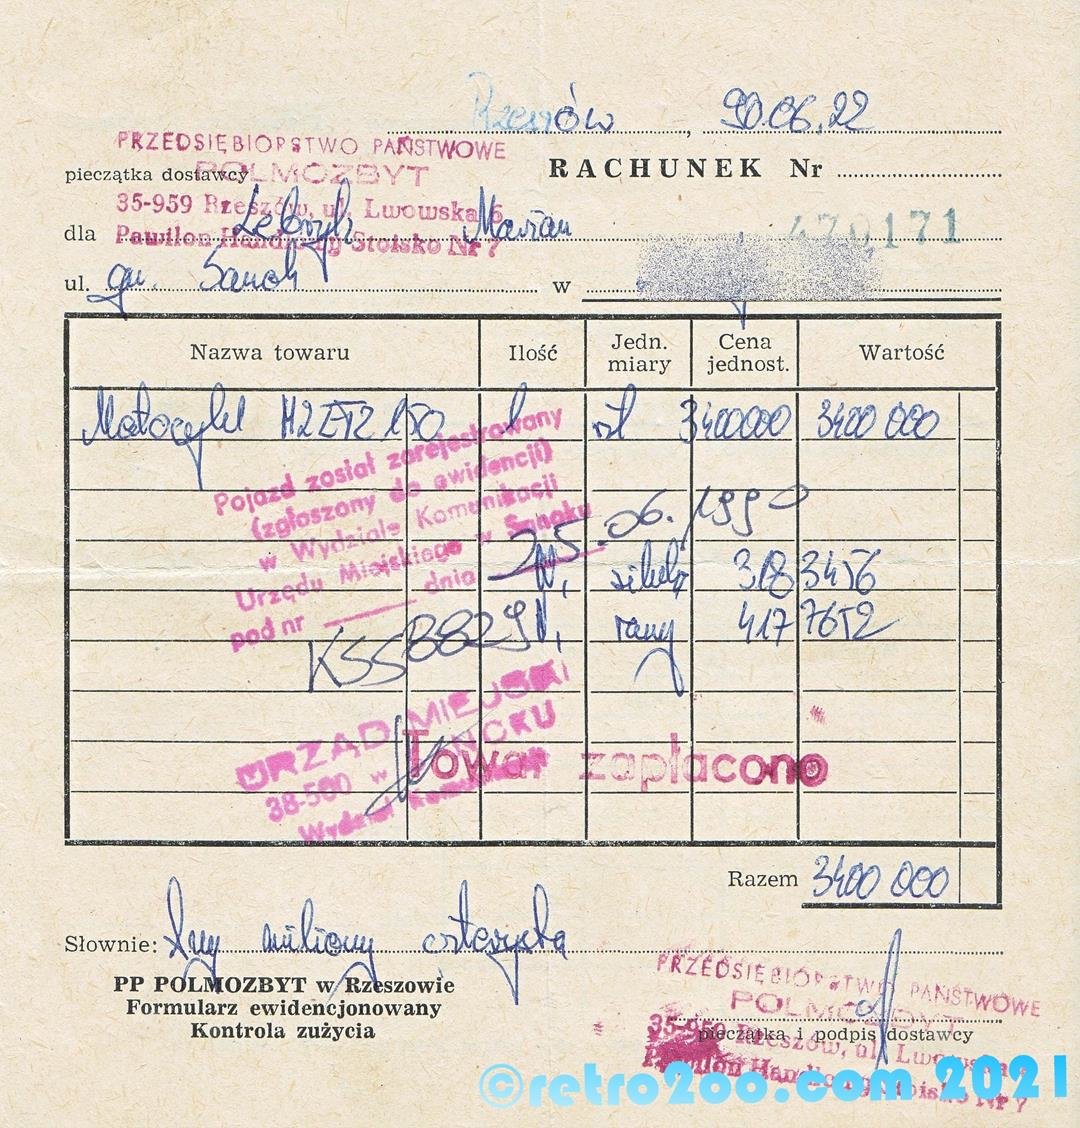 Rzeszów, 90.06.22
PRZEDSIĘBIORSTWO PAŃSTWOWE
POLMOZBYT
35-959 Rzeszów, ul. Lwowska 6
Pawilon Handlowy Stoisko Nr 7
pieczątka dostawcy
RACHUNEK Nr
470171
dla Marian
ul. gm. Sanok w
Nazwa towaru Ilość Jedn. miary Cena jednost. Wartość
Motocykl MZ ETZ 150 1 szt 3400000 3400 000
Pojazd został zarejestrowany
(zgłoszony do ewidencji)
w Wydziale Komunikacji
Urzędu Miejskiego w Sanoku
dnia 25.06.1990
pod nr KSS8829
N, silnika 3183456
N, ramy 4177652
URZĄD MIEJSKI
w SANOKU
38-500
Wydział Komunikacji
Towar zapłacono
Razem 3400 000
Słownie: trzy miliony czterysta
PP POLMOZBYT w Rzeszowie
Formularz ewidencjonowany
Kontrola zużycia
PRZEDSIĘBIORSTWO PAŃSTWOWE
POLMOZBYT
35-959 Rzeszów, ul. Lwowska
Pawilon Handlowy Stoisko Nr 7
pieczątka i podpis dostawcy
©retro2oo.com 2021